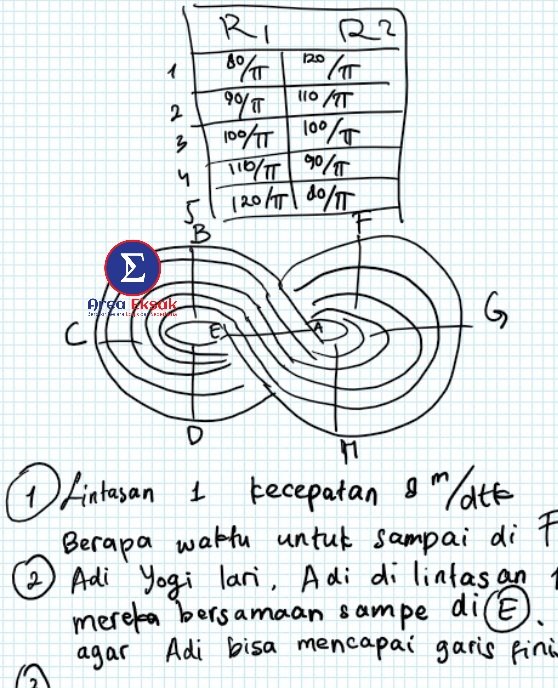 R1 R2
1 80/π 120/π
2 90/π 110/π
3 100/π 100/π
4 110/π 90/π
5 120/π 80/π
B F
Σ
Area Eksak
C E A G
D H
① Lintasan 1 kecepatan 8 m/dtk
Berapa waktu untuk sampai di F
② Adi Yogi lari, Adi di lintasan 1
mereka bersamaan sampe di E.
agar Adi bisa mencapai garis fini
③